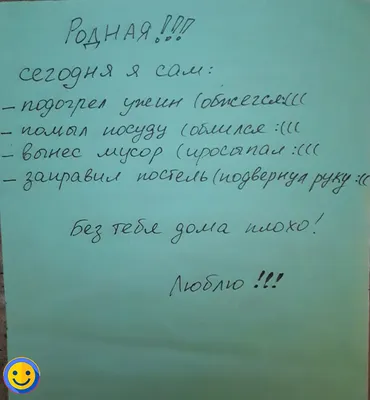 РОДНАЯ!!!
сегодня я сам:
- подогрел ужин (обжегся:(((
- помыл посуду (облился:(((
- вынес мусор (просыпал:(((
- заправил постель (подвернул руку:((
Без тебя дома плохо!
Люблю!!!